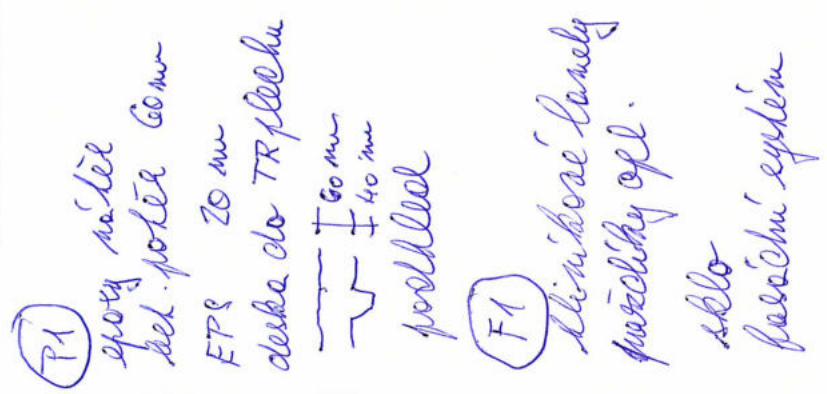 P1
epoxy nátěr
bet. potěr 60 mm
EPS 20 mm
deska do TR plechu
60 mm
40 mm
podhled
F1
hliníkové lamely
praždíky opl.
sklo
fasáchní systém